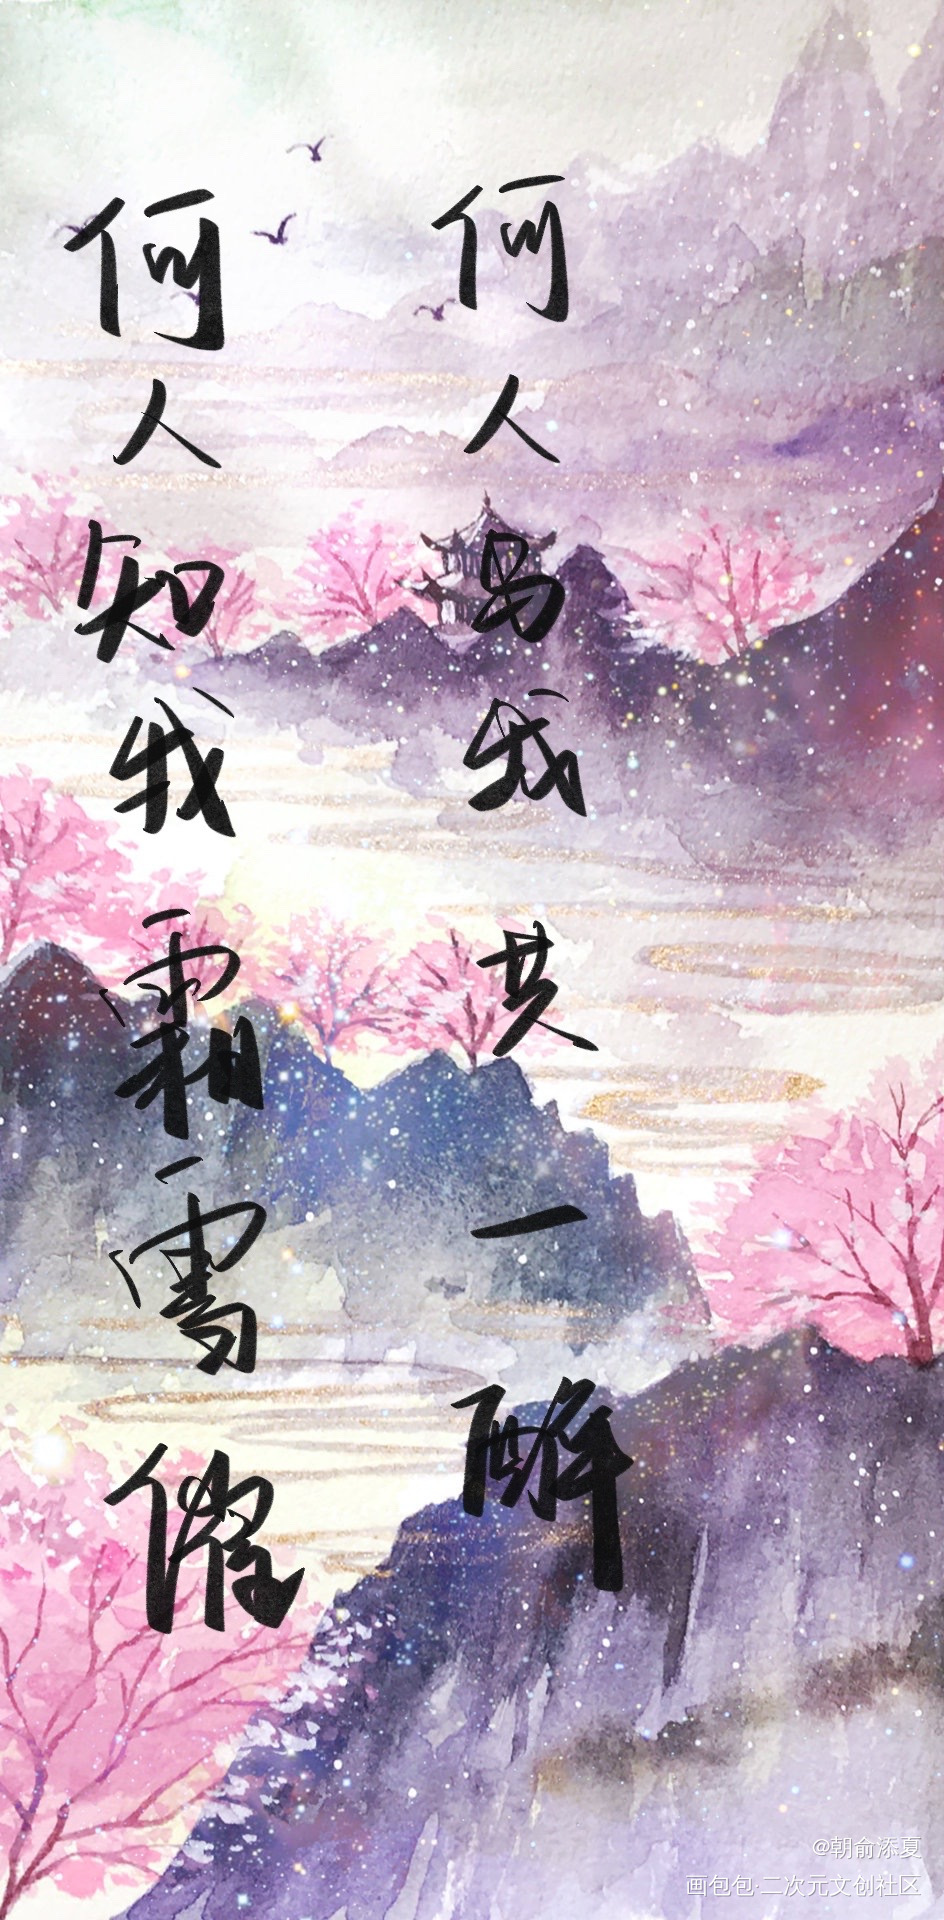 何人知我霜雪催
何人与我共一醉
@朝俞添夏
画包包·二次元文创社区